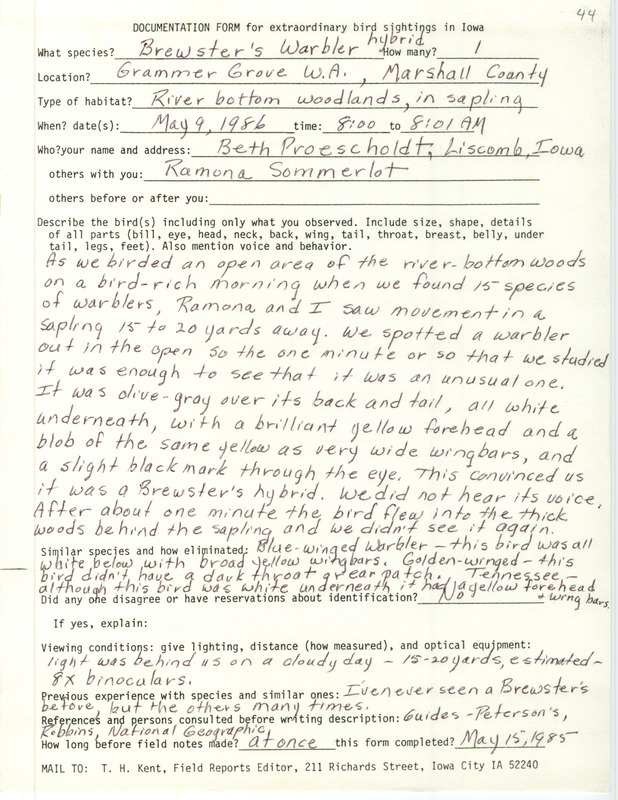 44
DOCUMENTATION FORM for extraordinary bird sightings in Iowa
What species? Brewster's Warbler hybrid How many? 1
Location? Grammer Grove W.A., Marshall County
Type of habitat? River bottom woodlands, in sapling
When? date(s): May 9, 1986 time: 8:00 to 8:01 AM
Who?your name and address: Beth Proescholdt, Liscomb, Iowa
others with you: Ramona Sommerlot
others before or after you:
Describe the bird(s) including only what you observed. Include size, shape, details
of all parts (bill, eye, head, neck, back, wing, tail, throat, breast, belly, under
tail, legs, feet). Also mention voice and behavior.
As we birded an open area of the river-bottom woods
on a bird-rich morning when we found 15 species
of warblers, Ramona and I saw movement in a
sapling 15 to 20 yards away. We spotted a warbler
out in the open so the one minute or so that we studied
it was enough to see that it was an unusual one.
It was olive-gray over its back and tail, all white
underneath, with a brilliant yellow forehead and a
blob of the same yellow as very wide wingbars, and
a slight black mark through the eye. This convinced us
it was a Brewster's hybrid. We did not hear its voice.
After about one minute the bird flew into the thick
woods behind the sapling and we didn't see it again.
Similar species and how eliminated: Blue-winged Warbler - this bird was all
white below with broad yellow wingbars. Golden-winged - this
bird didn't have a dark throat or ear patch. Tennessee -
although this bird was white underneath it had a yellow forehead
+ wing bars.
Did any one disagree or have reservations about identification? No
If yes, explain:
Viewing conditions: give lighting, distance (how measured), and optical equipment:
light was behind us on a cloudy day - 15-20 yards, estimated -
8X binoculars.
Previous experience with species and similar ones: I've never seen a Brewster's
before, but the others many times.
References and persons consulted before writing description: Guides - Peterson's,
Robbins, National Geographic
How long before field notes made? at once this form completed? May 15, 1985
MAIL TO: T. H. Kent, Field Reports Editor, 211 Richards Street, Iowa City IA 52240